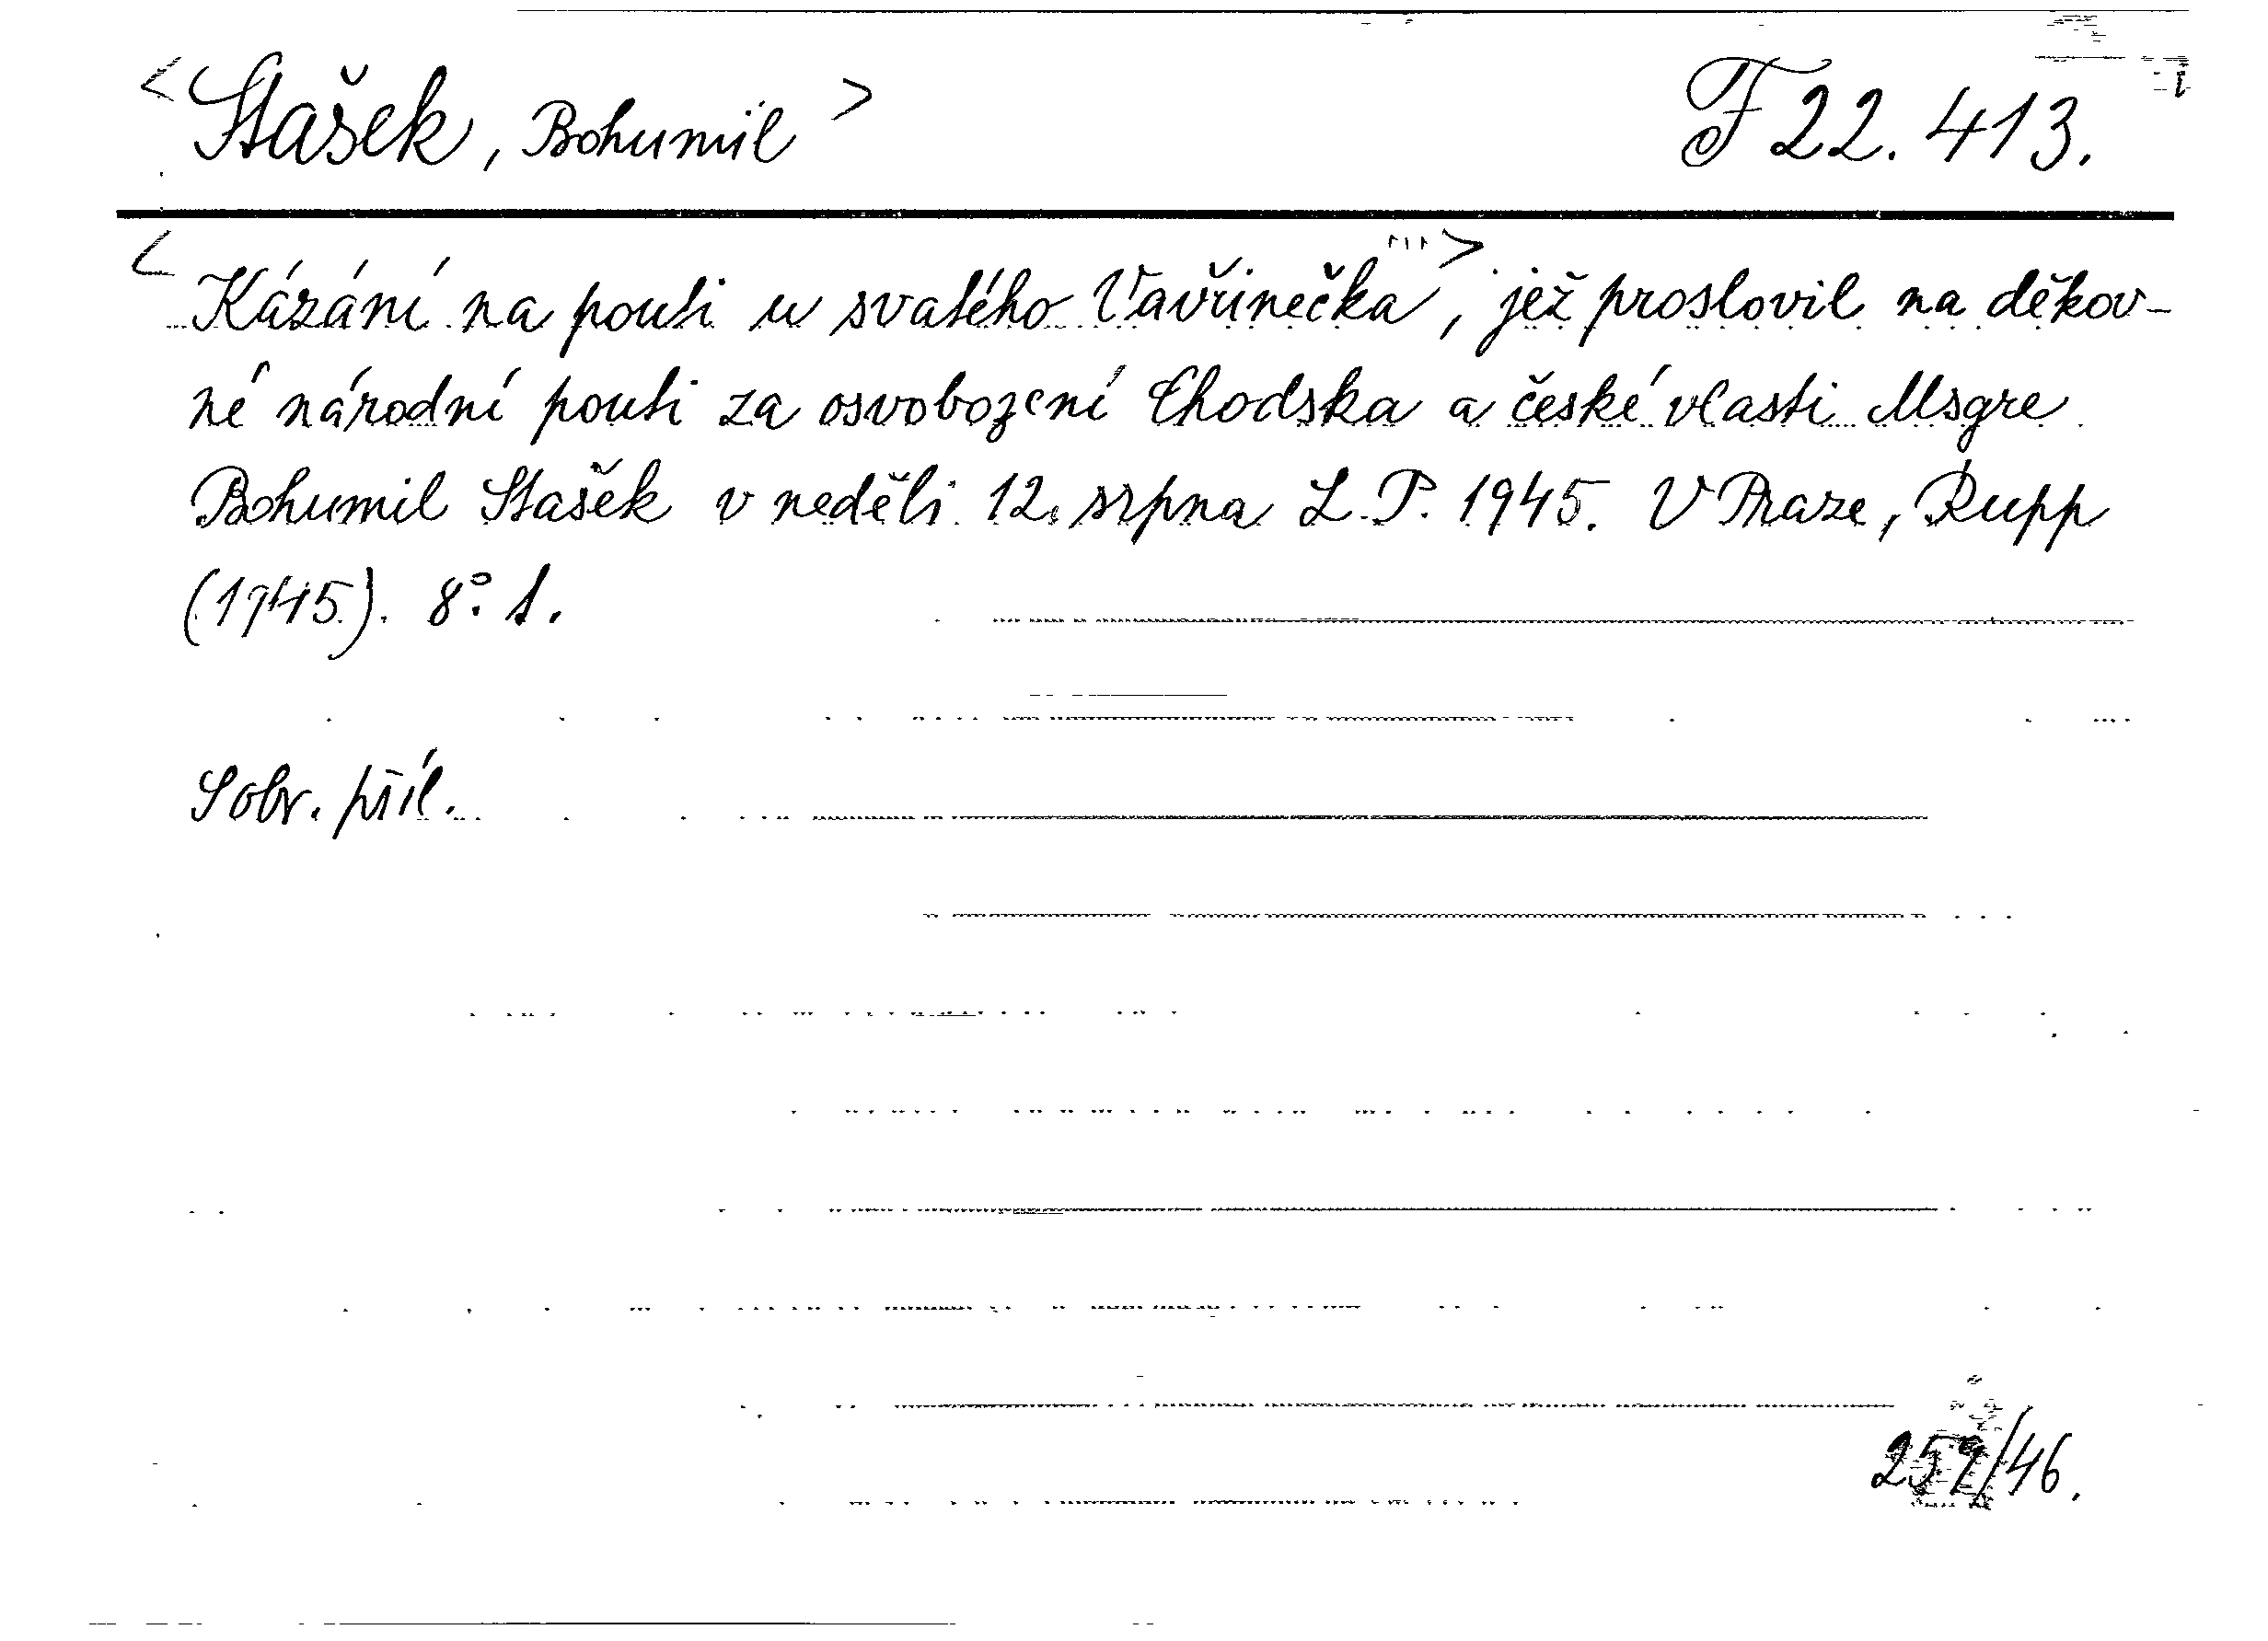 <Stašek, Bohumil> F 22.413.
<Kázání na pouti u svatého Vavřinečka, ...> jež proslovil na děkov-
né národní pouti za osvobození Chodska a české vlasti Msgre
Bohumil Stašek v neděli 12. srpna L.P. 1945. V Praze, Rupp
(1945). 8°. 1.
S obr. příl.
259/46.